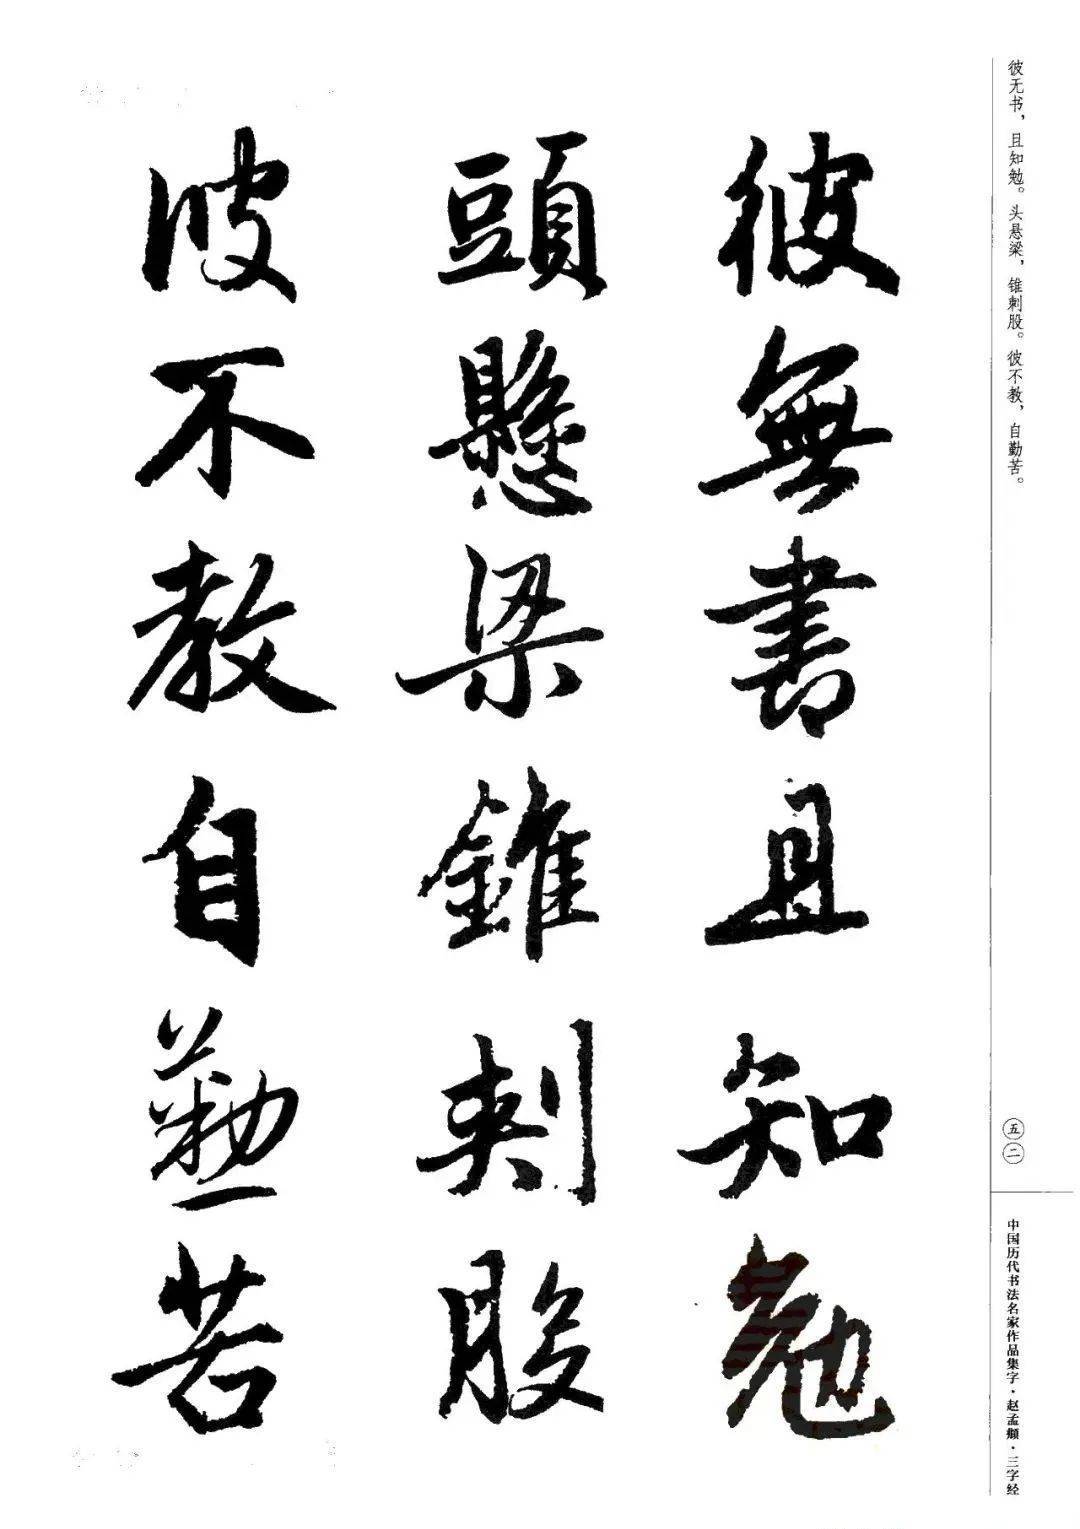 彼無書且知勉
頭懸梁錐刺股
彼不教自勤苦
彼无书，且知勉。头悬梁，锥刺股。彼不教，自勤苦。
五二
中国历代书法名家作品集字·赵孟頫·三字经